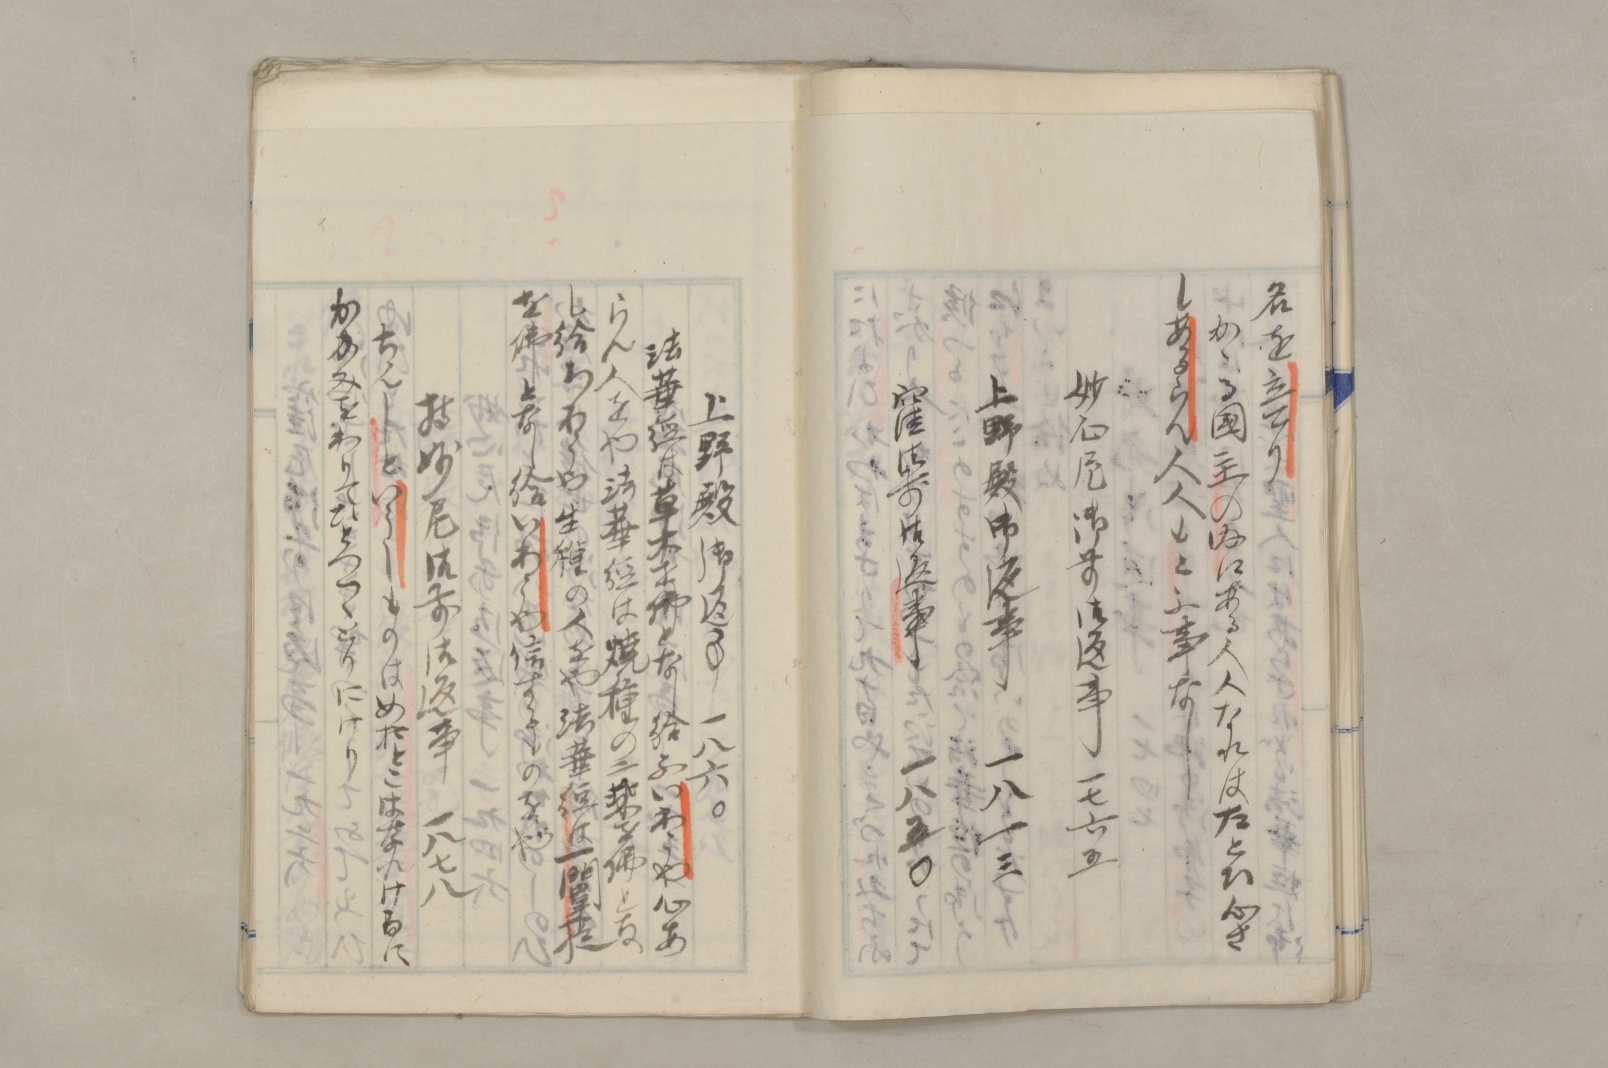 名を立てり
かゝる國主の內にある人人なれはたとひ心さ
しあるらん人人もとふ事なし
妙心尼御前御返事 一七六五
上野殿御返事 一八一三
窪尼御前御返事 一八五〇
上野殿御返事 一八六〇
法華經は草木を佛となし給ふいわうや心あ
らん人をや法華經は燒種の二乘を佛とな
し給ふいわうや生種の人をや法華經は一闡提
を佛となし給ふいわうや信するものをや
持妙尼御前御返事 一八七八
ちんしといゝしものはめおとこはなれけるに
かゝみをわりてひとつつゝとりにけり